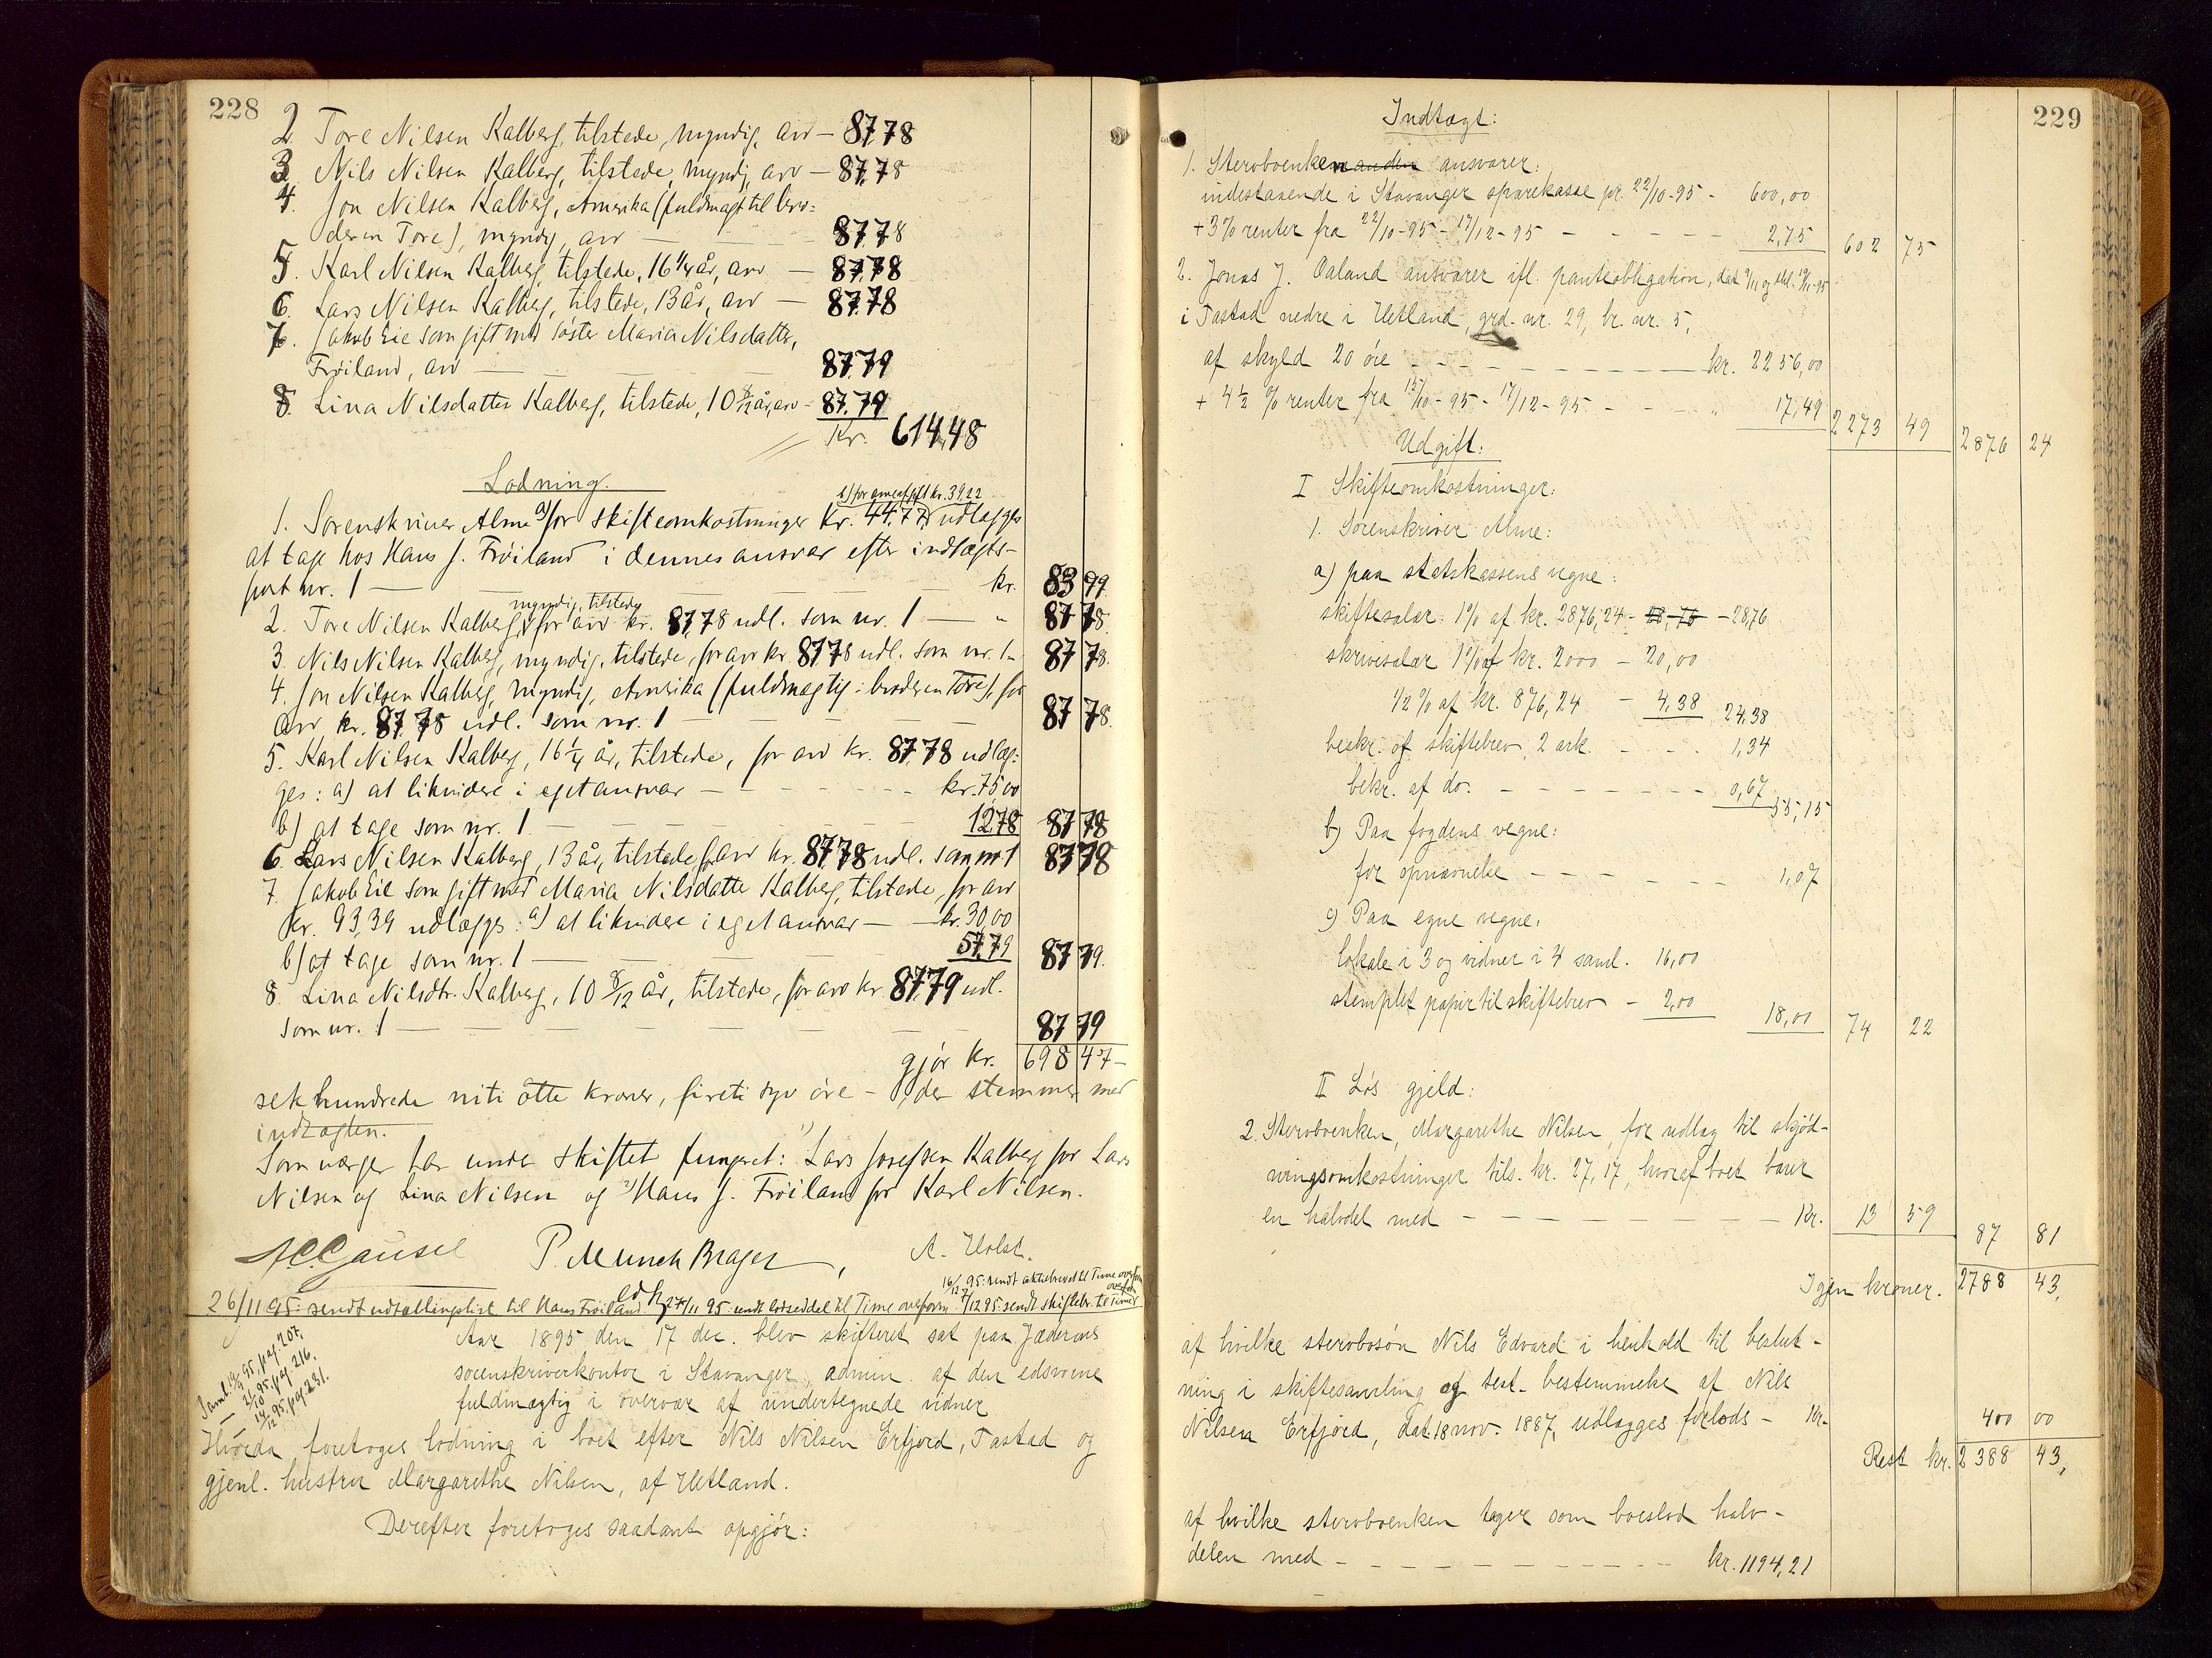 228
2 Tore Nilsen Kalberg, tilstede, myndig, arv — 87,78
3 Nils Nilsen Kalberg, tilstede, myndig, arv — 87,78
4. Jon Nilsen Kalberg, Amerika (fuldmagt til bro=
deren Tore), myndig, arv — 87,78
5. Karl Nilsen Kalberg, tilstede, 16 1/4 år, arv — 87,78
6. Lars Nilsen Kalberg, tilstede, 13 år, arv — 87,78
7. Jakob Eie som gift med søster Maria Nilsdatter,
Frøiland, arv — 87,79
8. Lina Nilsdatter Kalberg, tilstede, 10 8/12 år, arv - 87,79
Kr. 614,48
Lodning.
b) for arveafgift kr. 39,22
1. Sorenskriver Alme a) for skifteomkostninger kr. 44,77, udlægges
at tage hos Hans J. Frøiland i dennes ansvar efter indtægts-
post nr. 1 — kr. 83 99
myndig, tilstede
2. Tore Nilsen Kalberg, for arv kr. 87,78 udl. som nr. 1 — " 87 78.
3. Nils Nilsen Kalberg, myndig, tilstede, for arv kr. 87,78 udl. som nr. 1 - 87 78.
4. Jon Nilsen Kalberg, myndig, Amerika (fuldmægtig: broderen Tore), for
arv kr. 87,78 udl. som nr. 1 — 87 78.
5. Karl Nilsen Kalberg, 16 1/4 år, tilstede, for arv kr. 87,78 udlæg=
ges: a) at likvidere i eget ansvar — kr. 75,00
b) at tage som nr. 1. — 12,78 87 78
6. Lars Nilsen Kalberg, 13 år, tilstede, for arv kr. 87,78 udl. som nr. 1 87 78
7. Jakob Eie som gift med Maria Nilsdatter Kalberg, tilstede, for arv
kr. 93,39 udlægges: a) at likvidere i eget ansvar — kr. 30,00
b) at tage som nr. 1 — 57,79 87 79.
8. Lina Nilsdtr. Kalberg, 10 8/12 år, tilstede, for arv kr. 87,79 udl.
som nr. 1 — 87 79
gjør kr. 698 47 -
seks hundrede niti otte kroner, fireti syv øre - der stemmer med
indtægten.
Som værger har under skiftet fungeret: 1) Lars Josefsen Kalberg for Lars
Nilsen og Lina Nilsen og 2) Hans J. Frøiland for Karl Nilsen.
P. Munch Brager, A. Holst.
16/12 95: sendt til Time overform
26/11 95: sendt til Hans Frøiland. 27/11 95: sendt lodseddel til Time overform. 7/12 95: sendt skiftebr. til Time
Saml. 19/9 95, pag. 207,
— 21/10 95, pag. 216,
— 14/12 95, pag. 231.
Aar 1895 den 17 dec. blev skifteret sat paa Jæderens
sorenskriverkontor i Stavanger, admin. af den edsvorne
fuldmægtig i overvær af undertegnede vidner
Hvorda foretoges lodning i boet efter Nils Nilsen Erfjord, Tastad og
gjenl. hustru Margarethe Nilsen, af Hetland.
Derefter foretoges saadant opgjør:
229
Indtægt:
1. Stervboenken ansvarer:
indestaaende i Stavanger sparekasse pr. 22/10-95 - 600,00
+ 3% renter fra 22/10-95 - 17/12-95 - 2,75 602 75
2. Jonas J. Aaland ansvarer ifl. panteobligation, dat 9/11 og thl. 19/11-95
i Tastad nedre i Hetland, grd. nr. 29, br. nr. 5,
af skyld 20 øre — kr. 2256,00
+ 4 1/2 % renter fra 15/10-95 - 17/12-95 - " 17,49 2273 49 2876 24
Udgift:
I Skifteomkostninger:
1. Sorenskriver Alme:
a) paa statskassens vegne:
skiftesalær: 1% af kr. 2876,24 - 28,76 - 28,76
skrivesalær 1% af kr. 2000 - 20,00
1/2 % af kr. 876,24 - 4,38 24,38
beskr. af skiftebrev, 2 ark. - - - 1,34
bekr. af do. - - - 0,67 55,15
b) Paa fogdens vegne:
for opnævnelse - - - 1,07
c) Paa egne vegne:
lokale i 3 og vidner i 4 saml. 16,00
stemplet papir til skiftebrev - 2,00 18,00 74 22
II Løs gjeld:
2. Stervboenken, Margarethe Nilsen, for udlæg til skjød-
ningsomkostninger tils. kr. 27,17, hvoraf boet bærer
en halvdel med — Kr. 13 59 87 81
Igjen kroner. 2788 43,
af hvilke stervbosøn Nils Edvard i henhold til beslut-
ning i skiftesamling og test. bestemmelse af Nils
Nilsen Erfjord, dat. 18 nov. 1887, udlægges forlods - Kr. 400 00
Rest kr. 2388 43,
af hvilke stervboenken tager som boeslod halv-
delen med — kr. 1194,21